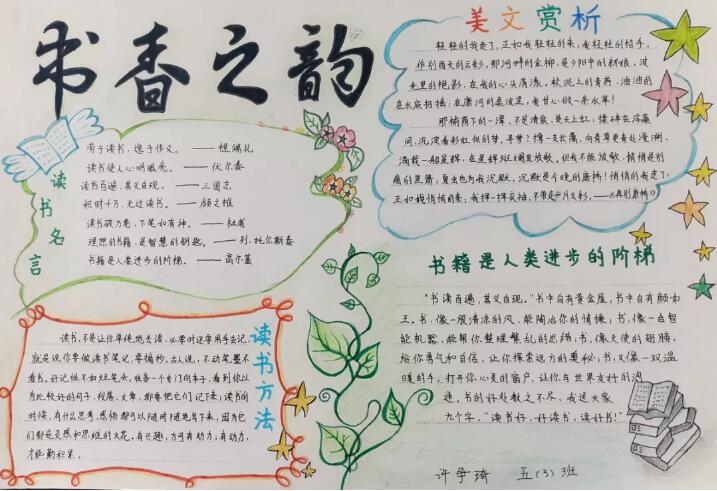 书香之韵
读书名言
劳于读书，逸于作文。——程端礼
读书使人心明眼亮。——伏尔泰
读书百遍，其义自现。——三国志
积财千万，无过读书。——颜之推
读书破万卷，下笔如有神。——杜甫
理想的书籍，是智慧的钥匙。——列.托尔斯泰
书籍是人类进步的阶梯。——高尔基
美文赏析
轻轻的我走了，正如我轻轻的来，我轻轻的招手，
作别西天的云彩，那河畔的金柳，是夕阳中的新娘，波
光里的艳影，在我的心头荡漾。软泥上的青荇，油油的
在水底招摇；在康河的柔波里，我甘心做一条水草！
那榆荫下的一潭，不是清泉，是天上虹；揉碎在浮藻
间，沉淀着彩虹似的梦。寻梦？撑一支长篙，向青草更青处漫溯，
满载一船星辉，在星辉斑斓里放歌。但我不能放歌，悄悄是别
离的笙箫；夏虫也为我沉默，沉默是今晚的康桥！悄悄的我走了，
正如我悄悄的来；我挥一挥衣袖，不带走一片云彩。——《再别康桥》
读书方法
读书，不是让你单纯地去读，必要时还要用手去记，
就是说你要做读书笔记，要摘抄。古人说，不动笔墨不
看书。好记性不如烂笔头，准备一个专门的本子，看到你认
为比较好的句子，段落，文章，都要把它们记下来，读书的
时候，有什么思考，感悟都可以随时随笔写下来，因为它
们都是灵感和思维的火花。有兴趣，方可有动力；有动力，
才能勤积累。
书籍是人类进步的阶梯
“书读百遍，其义自现。”书中自有黄金屋，书中自有颜如
玉。书，像一股清凉的风，能陶冶你的情操；书，像一台智
能机器，能帮你整理繁乱的思绪；书，像天使的翅膀，
给你勇气和自信，让你探索远方的奥秘；书，又像一双温
暖的手，打开你心灵的窗户，让你与世界友好的沟
通，书的好处数之不尽，我送大家
九个字，“读书好，好读书，读好书！”
许争琦 五（3）班